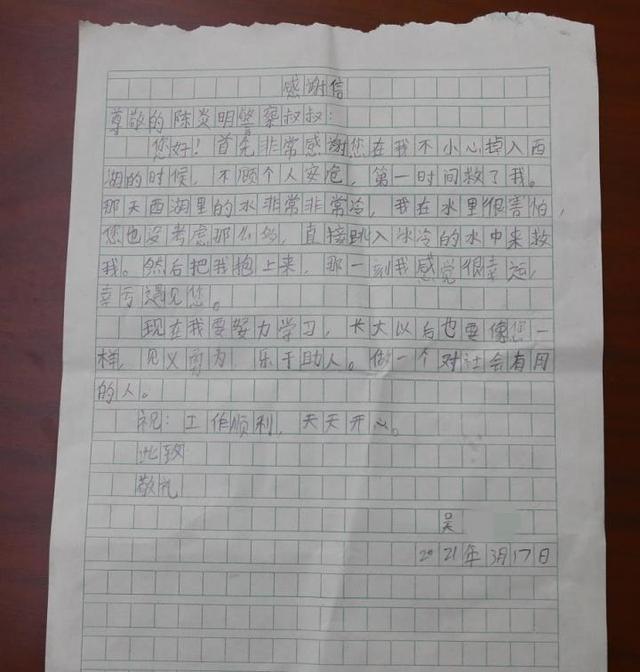 感谢信
尊敬的陈炎明警察叔叔:
您好!首先非常感谢您在我不小心掉入西
湖的时候,不顾个人安危,第一时间救了我。
那天西湖里的水非常非常冷,我在水里很害怕,
您也没考虑那么多,直接跳入冰冷的水中来救
我。然后把我抱上来,那一刻我感觉很幸运,
幸亏遇见您。
现在我要努力学习,长大以后也要像您一
样,见义勇为,乐于助人。做一个对社会有用
的人。
祝:工作顺利,天天开心。
此致
敬礼
吴
2021年3月17日